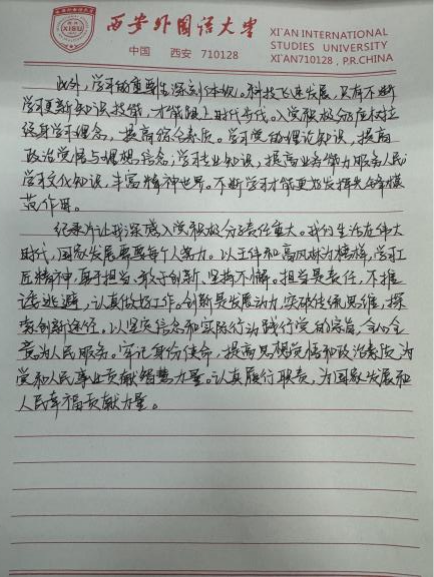 西安外国语大学
中国 西安 710128
XI'AN INTERNATIONAL
STUDIES UNIVERSITY
XI'AN710128, P.R.CHINA
XISU
此外,学习的重要性深刻体现。科技飞速发展,只有不断
学习更新知识技能,才能跟上时代步伐。入党积极分子应树立
终身学习理念,提高综合素质。学习党的理论知识,提高
政治觉悟与理想信念;学习专业知识,提高业务能力服务人民;
学习文化知识,丰富精神世界。不断学习才能更好发挥先锋模
范作用。
纪录片让我深感入党积极分子责任重大。我们生活在伟大
时代,国家发展需要每个人努力。以王伟和高凤林为榜样,学习工
匠精神,勇于担当、敢于创新、坚持不懈。担当是责任,不推
诿逃避,认真做好工作。创新是发展动力,突破传统思维,探
索创新途径。以坚定信念和实际行动践行党的宗旨,全心全
意为人民服务。牢记身份使命,提高思想觉悟和政治素质,为
党和人民事业贡献智慧力量。认真履行职责,为国家发展和
人民幸福贡献力量。